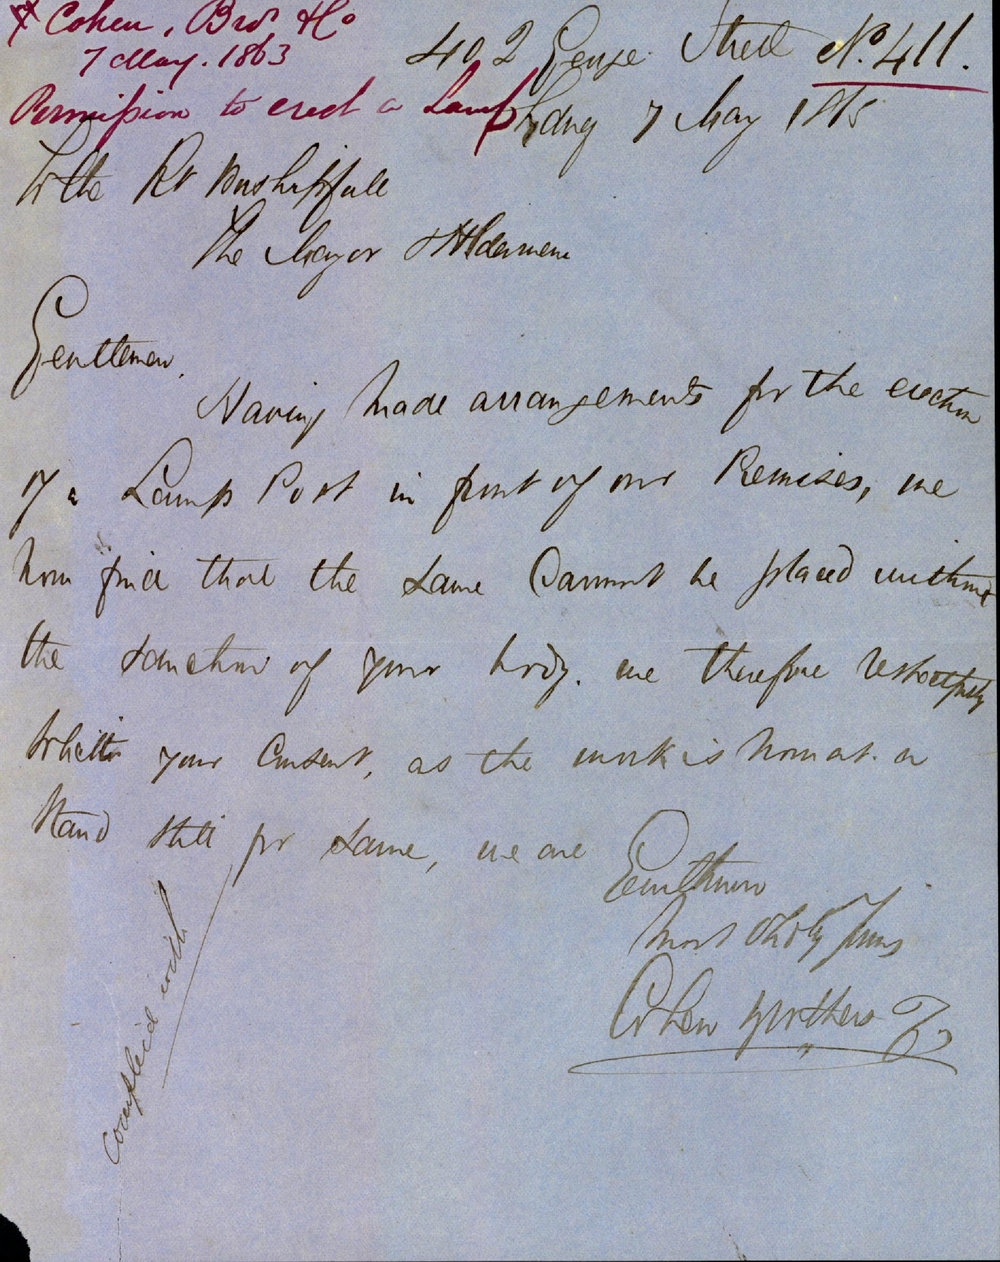 Cohen, Bros & Co
7 May. 1863
Permission to erect a Lamp
402 George Street No. 411.
Sydney 7 May 1863
To the Rt Worshipfull
The Mayor & Aldermen
Gentlemen,
Having made arrangements for the erection
of a Lamp Post in front of our Premises, we
now find that the same Cannot be placed without
the sanction of your body. we therefore respectfully
your Consent, as the work is now at a
Stand Still for same, we are
Gentlemen
Most Obdly Yours
Cohen Brothers
Complied with